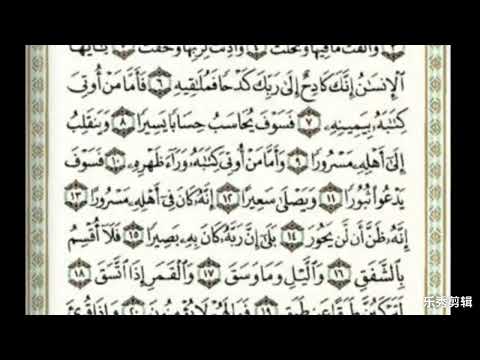 وَأَلْقَتْ مَا فِيهَا وَتَخَلَّتْ ٤ وَأَذِنَتْ لِرَبِّهَا وَحُقَّتْ ٥ يَٰٓأَيُّهَا
ٱلْإِنسَٰنُ إِنَّكَ كَادِحٌ إِلَىٰ رَبِّكَ كَدْحًا فَمُلَٰقِيهِ ٦ فَأَمَّا مَنْ أُوتِىَ
كِتَٰبَهُۥ بِيَمِينِهِۦ ٧ فَسَوْفَ يُحَاسَبُ حِسَابًا يَسِيرًا ٨ وَيَنقَلِبُ
إِلَىٰٓ أَهْلِهِۦ مَسْرُورًا ٩ وَأَمَّا مَنْ أُوتِىَ كِتَٰبَهُۥ وَرَآءَ ظَهْرِهِۦ ١٠ فَسَوْفَ
يَدْعُوا۟ ثُبُورًا ١١ وَيَصْلَىٰ سَعِيرًا ١٢ إِنَّهُۥ كَانَ فِىٓ أَهْلِهِۦ مَسْرُورًا ١٣
إِنَّهُۥ ظَنَّ أَن لَّن يَحُورَ ١٤ بَلَىٰٓ إِنَّ رَبَّهُۥ كَانَ بِهِۦ بَصِيرًا ١٥ فَلَآ أُقْسِمُ
بِٱلشَّفَقِ ١٦ وَٱلَّيْلِ وَمَا وَسَقَ ١٧ وَٱلْقَمَرِ إِذَا ٱتَّسَقَ ١٨
لَتَرْكَبُنَّ طَبَقًا عَن طَبَقٍ ١٩ فَمَا لَهُمْ لَا يُؤْمِنُونَ ٢٠ وَإِذَا قُرِئَ
乐秀剪辑